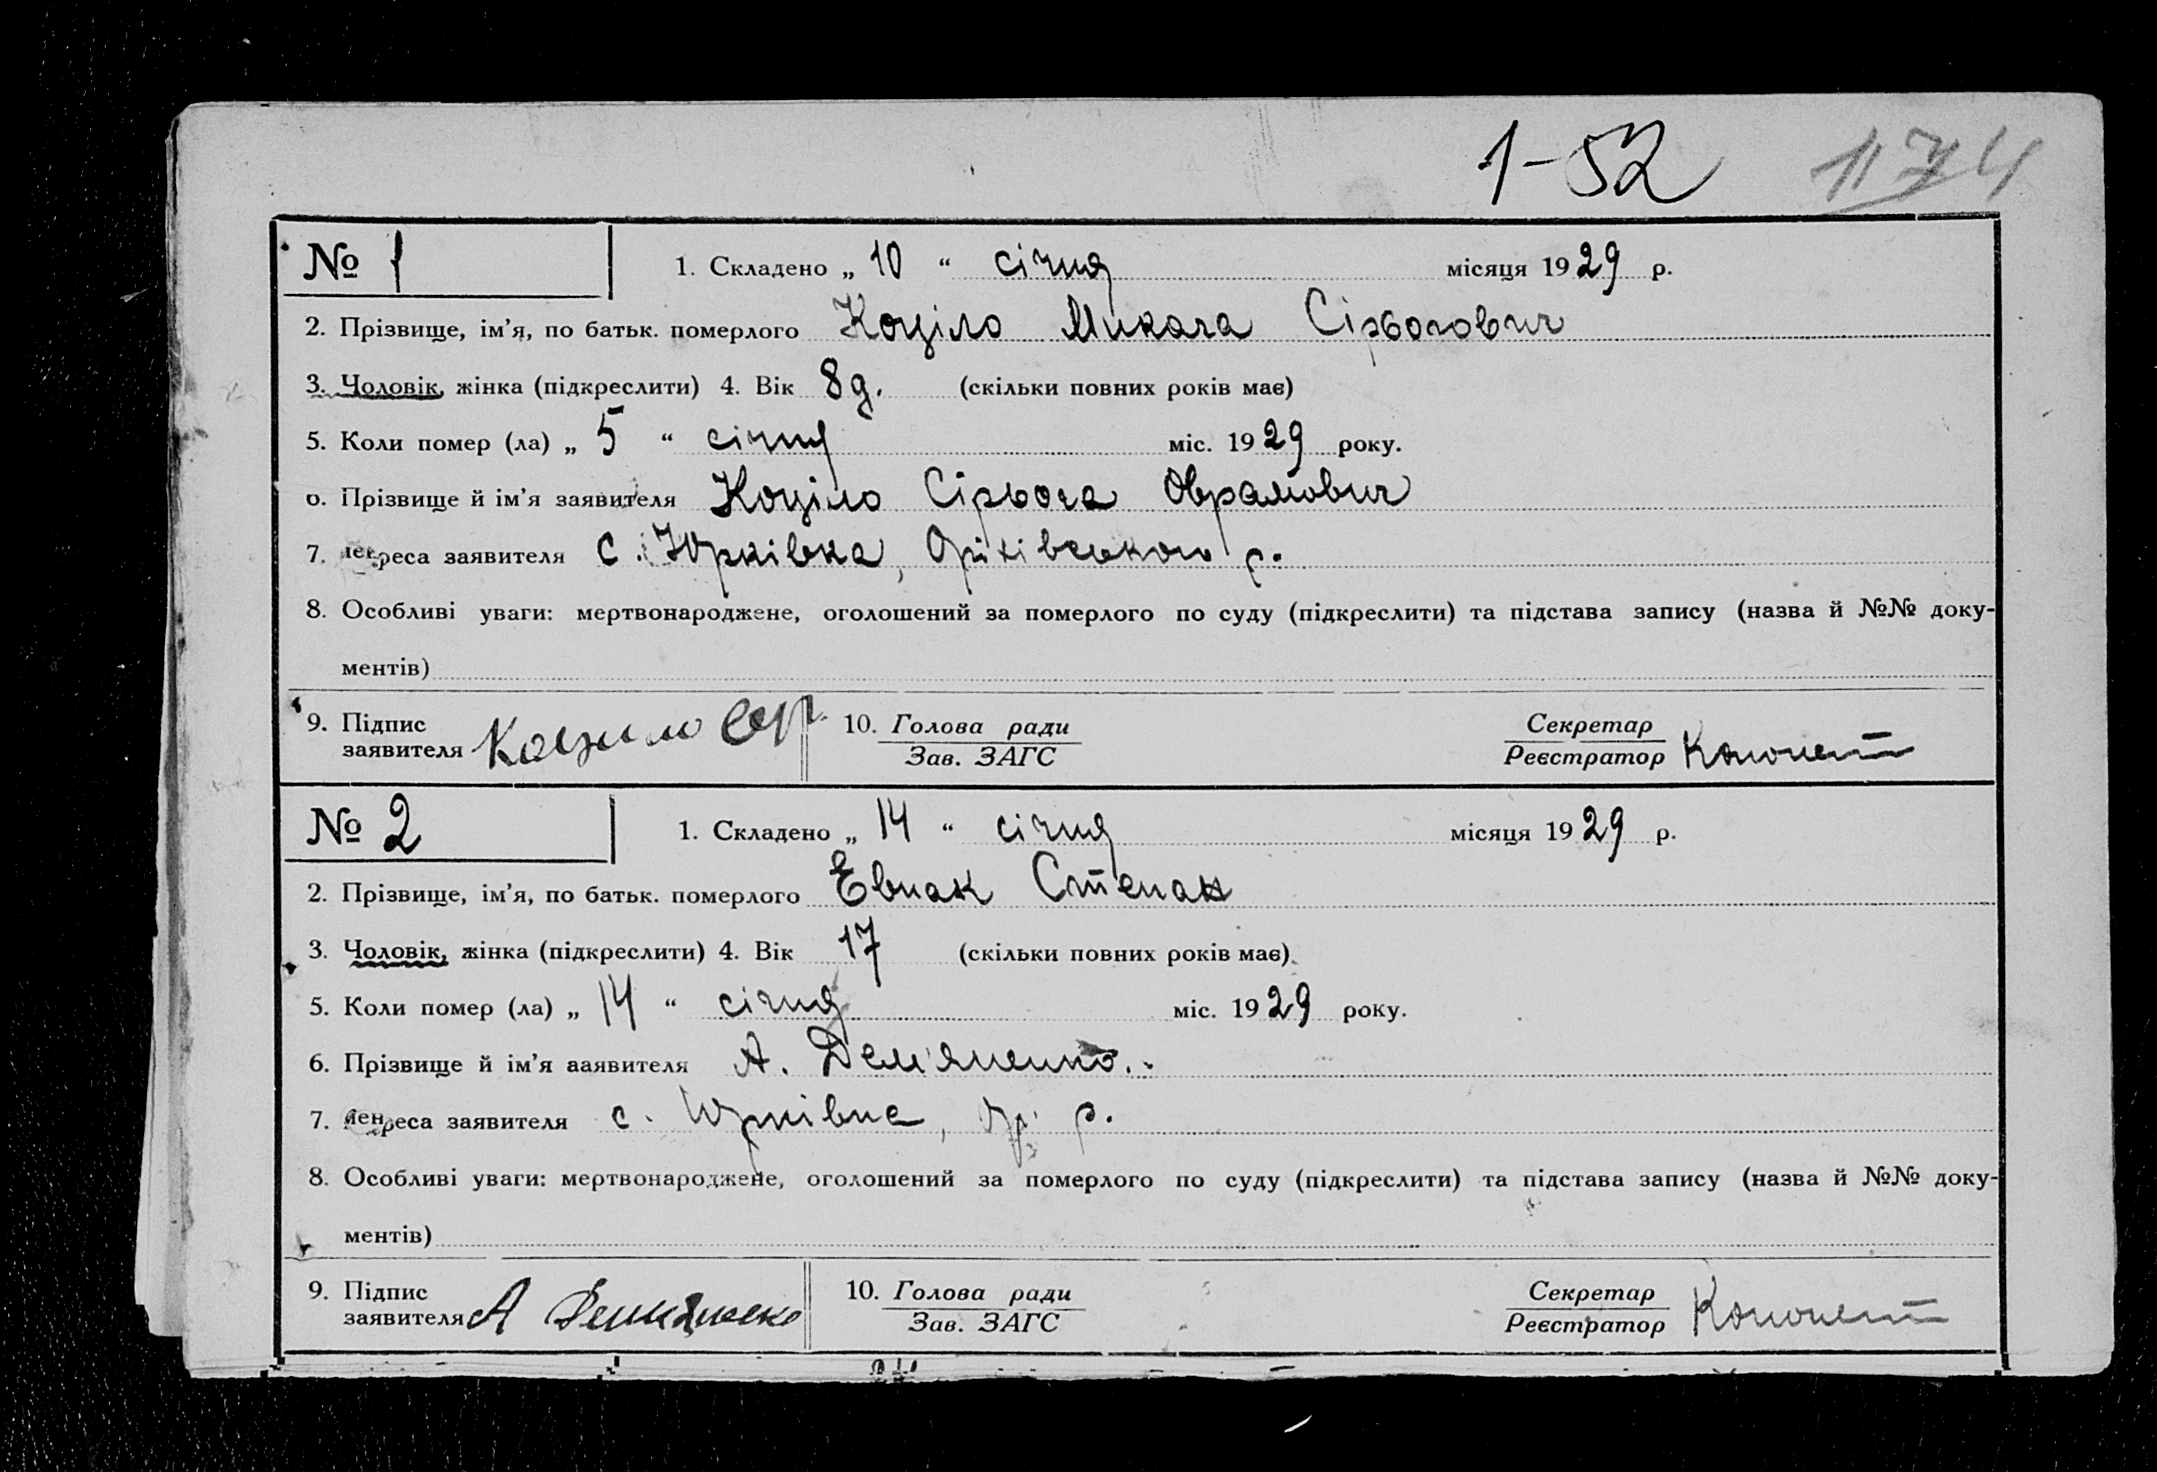 1-52 1174
№ 1 1. Складено „ 10 “ січня місяця 1929 р.
2. Прізвище, ім’я, по батьк. померлого Коціло Микола Сірьогович
3. Чоловік, жінка (підкреслити) 4. Вік 8 д. (скільки повних років має)
5. Коли помер (ла) „ 5 “ січня міс. 1929 року.
6. Прізвище й ім’я заявителя Коціло Сірьога Оврамович
7. Адреса заявителя с. Юрківка, Оріхівського р.
8. Особливі уваги: мертвонароджене, оголошений за померлого по суду (підкреслити) та підстава запису (назва й №№ доку-
ментів)
9. Підпис заявителя Коцило Сер. 10. Голова ради Секретар
Зав. ЗАГС Реєстратор
№ 2 1. Складено „ 14 “ січня місяця 1929 р.
2. Прізвище, ім’я, по батьк. померлого Евпак Степан
3. Чоловік, жінка (підкреслити) 4. Вік 17 (скільки повних років має)
5. Коли помер (ла) „ 14 “ січня міс. 1929 року.
6. Прізвище й ім’я заявителя А. Дем'яненко.
7. Адреса заявителя с. Юрківка, Ор. р.
8. Особливі уваги: мертвонароджене, оголошений за померлого по суду (підкреслити) та підстава запису (назва й №№ доку-
ментів)
9. Підпис заявителя А 10. Голова ради Секретар
Зав. ЗАГС Реєстратор